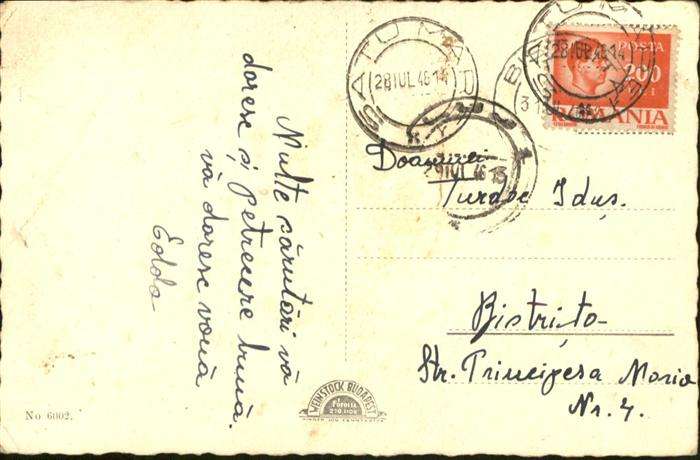 Multe sărutări vă
doresc și petrecere bună.
vă doresc vouă
SATU MARE
28 IUL 46 14
SATU MARE
28 IUL 46 14
POSTA
200
LEI
ROMANIA
29 IUL 46 15
Doamnei
Turdoe Iduș.
Bistrița
Str. Principesa Maria
Nr. 4.
No 6002.
WEINSTOCK BUDAPEST